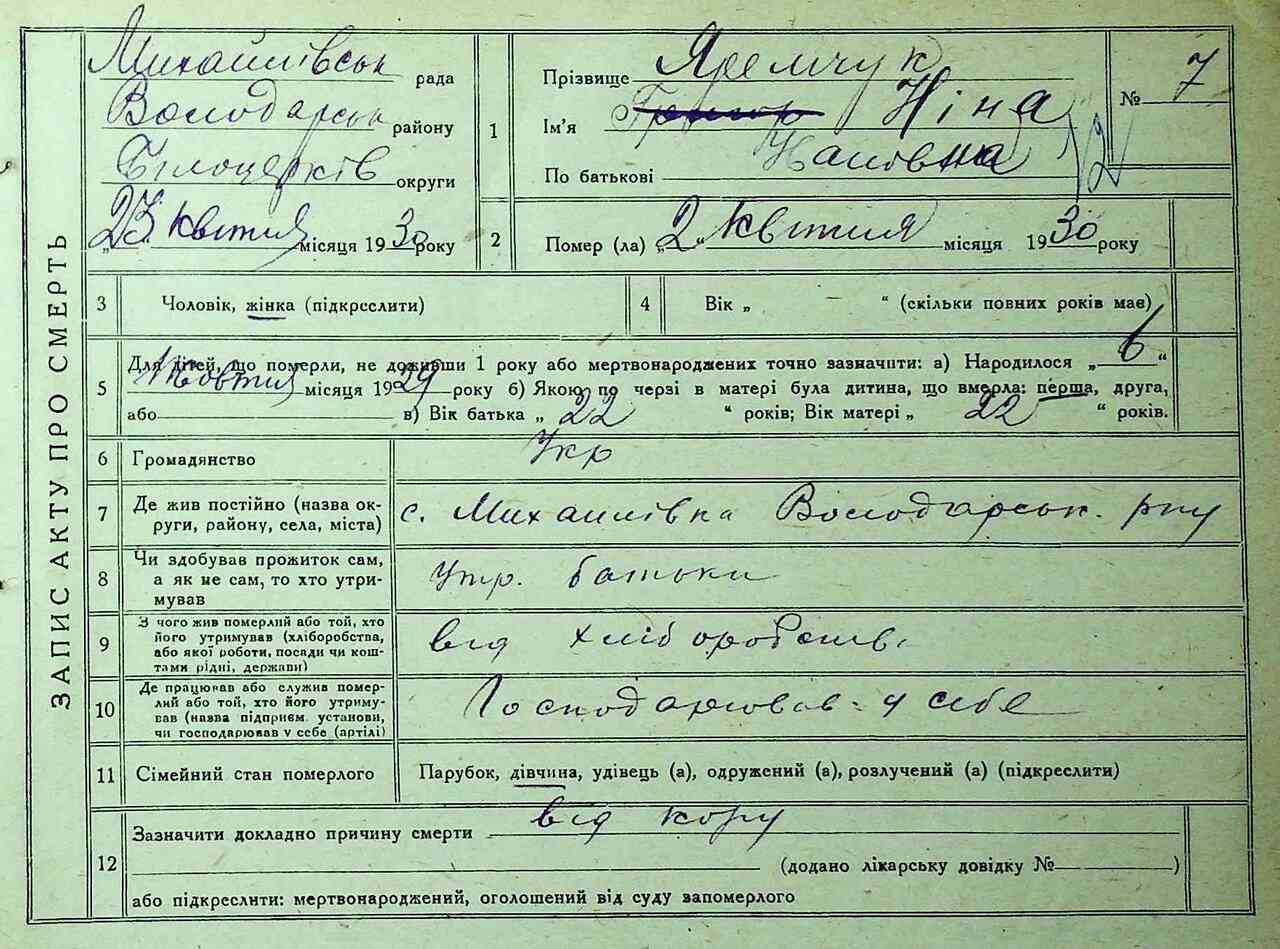 ЗАПИС АКТУ ПРО СМЕРТЬ
Михайлівськ рада
Володарськ району
Білоцерків округи
„23“ квітня місяця 1930 року
1 Прізвище Яремчук
Ім'я Ніна
По батькові
№ 7
2 Помер (ла) „2“ квітня місяця 1930 року
3 Чоловік, жінка (підкреслити)
4 Вік „ — “ (скільки повних років має)
5 Для дітей, що померли, не доживши 1 року або мертвонароджених точно зазначити: а) Народилося „6“
жовтня місяця 1929 року б) Якою по черзі в матері була дитина, що вмерла: перша, друга,
або в) Вік батька „ 22 “ років; Вік матері „ 22 “ років.
6 Громадянство Укр
7 Де жив постійно (назва ок-
руги, району, села, міста) с. Михайлівка Володарськ. р-ну
8 Чи здобував прожиток сам,
а як не сам, то хто утри-
мував утр. батьки
9 З чого жив померлий або той, хто
його утримував (хліборобства,
або якої роботи, посади чи кош-
тами рідні, держави) від хліборобств.
10 Де працював або служив помер-
лий або той, хто його утриму-
вав (назва підприєм. установи,
чи господарював у себе (артілі) Господарював у себе
11 Сімейний стан померлого Парубок, дівчина, удівець (а), одружений (а), розлучений (а) (підкреслити)
12 Зазначити докладно причину смерти від кору
(додано лікарську довідку № )
або підкреслити: мертвонароджений, оголошений від суду запомерлого